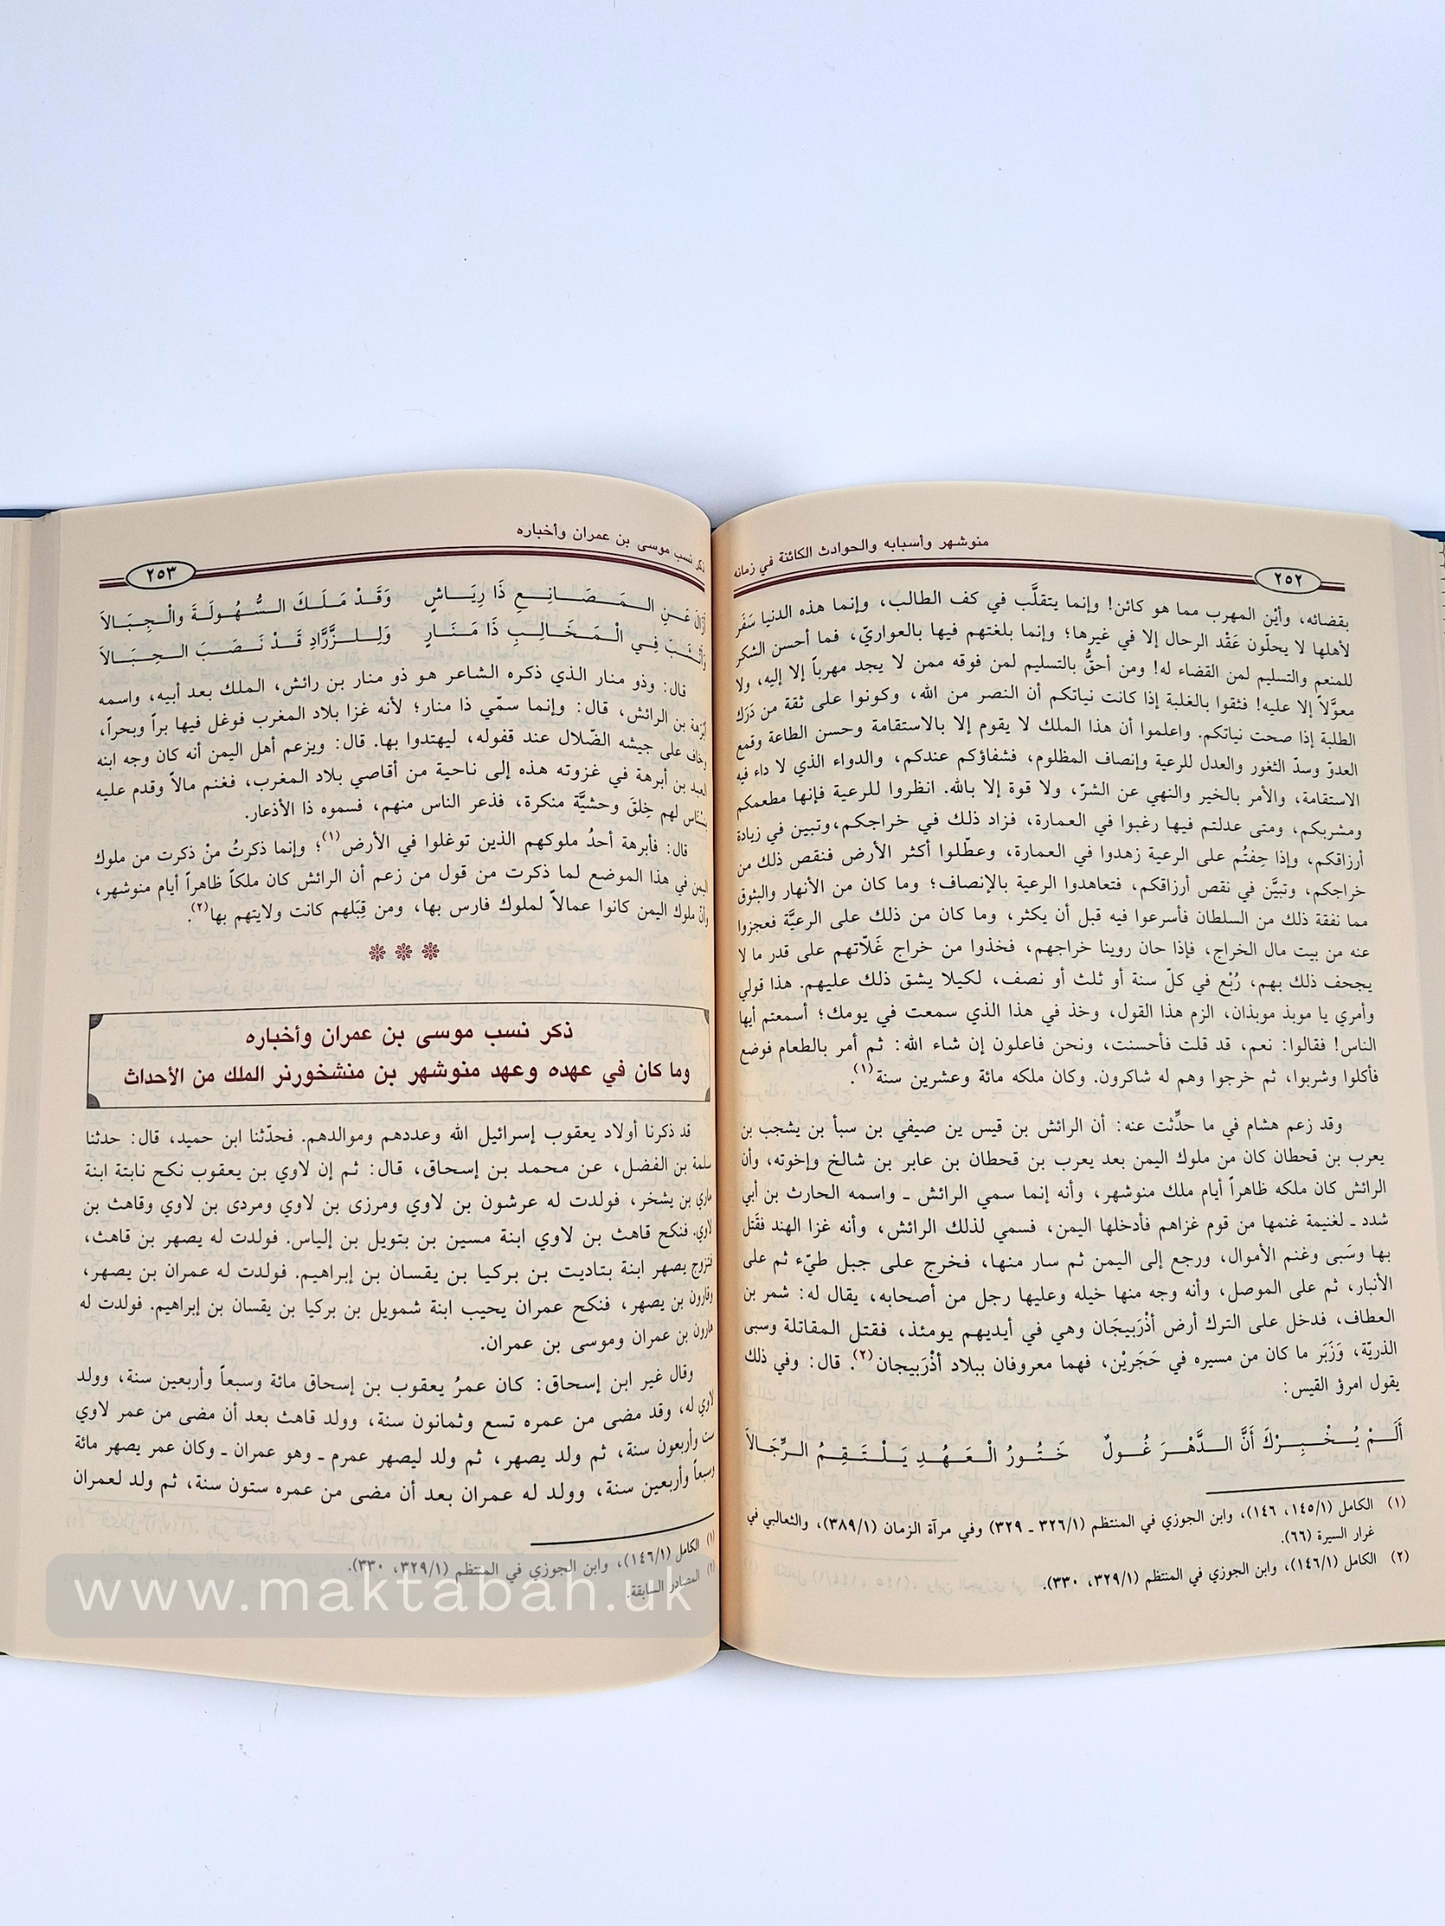 منوشهر وأسبابه والحوادث الكائنة في زمانه
٢٥٢
بقضائه، وأيْن المهرب مما هو كائن! وإنما يتقلَّب في كف الطالب، وإنما هذه الدنيا سَفَر
لأهلها لا يحلّون عَقْد الرحال إلا في غيرها؛ وإنما بلغتهم فيها بالعواريّ، فما أحسن الشكر
للمنعم والتسليم لمن القضاء له! ومن أحقُّ بالتسليم لمن فوقه ممن لا يجد مهرباً إلا إليه، ولا
معوَّلاً إلا عليه! فثقوا بالغلبة إذا كانت نياتكم أن النصر من الله، وكونوا على ثقة من دَرَك
الطلبة إذا صحت نياتكم. واعلموا أن هذا الملك لا يقوم إلا بالاستقامة وحسن الطاعة وقمع
العدوّ وسدّ الثغور والعدل للرعية وإنصاف المظلوم، فشفاؤكم عندكم، والدواء الذي لا داء فيه
الاستقامة، والأمر بالخير والنهي عن الشرّ، ولا قوة إلا بالله. انظروا للرعية فإنها مطعمكم
ومشربكم، ومتى عدلتم فيها رغبوا في العمارة، فزاد ذلك في خراجكم، وتبين في زيادة
أرزاقكم، وإذا حِفتُم على الرعية زهدوا في العمارة، وعطّلوا أكثر الأرض فنقص ذلك من
خراجكم، وتبيَّن في نقص أرزاقكم، فتعاهدوا الرعية بالإنصاف؛ وما كان من الأنهار والبثوق
مما نفقة ذلك من السلطان فأسرعوا فيه قبل أن يكثر، وما كان من ذلك على الرعيَّة فعجزوا
عنه من بيت مال الخراج، فإذا حان روينا خراجهم، فخذوا من خراج غَلاّتهم على قدر ما لا
يجحف ذلك بهم، رُبْع في كلّ سنة أو ثلث أو نصف، لكيلا يشق ذلك عليهم. هذا قولي
وأمري يا موبذ موبذان، الزم هذا القول، وخذ في هذا الذي سمعت في يومك؛ أسمعتم أيها
الناس! فقالوا: نعم، قد قلت فأحسنت، ونحن فاعلون إن شاء الله: ثم أمر بالطعام فوضع
فأكلوا وشربوا، ثم خرجوا وهم له شاكرون. وكان ملكه مائة وعشرين سنة(١).
وقد زعم هشام في ما حدِّثت عنه: أن الرائش بن قيس ين صيفي بن سبأ بن يشجب بن
يعرب بن قحطان كان من ملوك اليمن بعد يعرب بن قحطان بن عابر بن شالخ وإخوته، وأن
الرائش كان ملكه ظاهراً أيام ملك منوشهر، وأنه إنما سمي الرائش ـ واسمه الحارث بن أبي
شدد ـ لغنيمة غنمها من قوم غزاهم فأدخلها اليمن، فسمي لذلك الرائش، وأنه غزا الهند فقَتل
بها وسَبى وغنم الأموال، ورجع إلى اليمن ثم سار منها، فخرج على جبل طيّء ثم على
الأنبار، ثم على الموصل، وأنه وجه منها خيله وعليها رجل من أصحابه، يقال له: شمر بن
العطاف، فدخل على الترك أرض أذْرَبيجَان وهي في أيديهم يومئذ، فقتل المقاتلة وسبى
الذريّة، وَزَبَر ما كان من مسيره في حَجَريْن، فهما معروفان ببلاد أذْرَبيجان(٢). قال: وفي ذلك
يقول امرؤ القيس:
أَلَـمْ يُـخْـبِـرْكَ أَنَّ الـدَّهْـرَ غُـولٌ خَـتُـورُ الْـعَـهْـدِ يَـلْـتَـقِـمُ الـرِّجَـالاَ
(١) الكامل (١٤٥/١، ١٤٦)، وابن الجوزي في المنتظم (٣٢٦/١ ـ ٣٢٩) وفي مرآة الزمان (٣٨٩/١)، والثعالبي في
غرار السيرة (٦٦).
(٢) الكامل (١٤٦/١)، وابن الجوزي في المنتظم (٣٢٩/١، ٣٣٠).
ذكر نسب موسى بن عمران وأخباره
٢٥٣
أزالَ عَـنِ الـمَـصَـانِـعِ ذَا رِيَـاشٍ وَقَـدْ مَـلَـكَ الـسُّـهُـولَـةَ والْـجِـبَـالاَ
وأنْـشَـبَ فِـي الْـمَخَـالِـبِ ذَا مَـنَـارٍ وَلِـلـزَّرَّادِ قَـدْ نَـصَـبَ الـحِـبَـالاَ
قال: وذو منار الذي ذكره الشاعر هو ذو منار بن رائش، الملك بعد أبيه، واسمه
أبْرَهة بن الرائش، قال: وإنما سمّي ذا منار؛ لأنه غزا بلاد المغرب فوغل فيها براً وبحراً،
وخاف على جيشه الضّلال عند قفوله، ليهتدوا بها. قال: ويزعم أهل اليمن أنه كان وجه ابنه
العبد بن أبرهة في غزوته هذه إلى ناحية من أقاصي بلاد المغرب، فغنم مالاً وقدم عليه
بنسْنَاس لهم خِلقَ وحشيَّة منكرة، فذعر الناس منهم، فسموه ذا الأذعار.
قال: فأبرهة أحدُ ملوكهم الذين توغلوا في الأرض(١)؛ وإنما ذكرتُ منْ ذكرت من ملوك
اليمن في هذا الموضع لما ذكرت من قول من زعم أن الرائش كان ملكاً ظاهراً أيام منوشهر،
وأنّ ملوك اليمن كانوا عمالاً لملوك فارس بها، ومن قِبَلهم كانت ولايتهم بها(٢).
ذكر نسب موسى بن عمران وأخباره
وما كان في عهده وعهد منوشهر بن منشخورنر الملك من الأحداث
قد ذكرنا أولاد يعقوب إسرائيل الله وعددهم وموالدهم. فحدّثنا ابن حميد، قال: حدثنا
سلمة بن الفضل، عن محمد بن إسحاق، قال: ثم إن لاوي بن يعقوب نكح نابتة ابنة
ماري بن يشخر، فولدت له عرشون بن لاوي ومرزى بن لاوي ومردى بن لاوي وقاهث بن
لاوي. فنكح قاهث بن لاوي ابنة مسين بن بتويل بن إلياس. فولدت له يصهر بن قاهث،
فتزوج يصهر ابنة بتاديت بن بركيا بن يقسان بن إبراهيم. فولدت له عمران بن يصهر،
وقارون بن يصهر، فنكح عمران يحيب ابنة شمويل بن بركيا بن يقسان بن إبراهيم. فولدت له
هارون بن عمران وموسى بن عمران.
وقال غير ابن إسحاق: كان عمرُ يعقوب بن إسحاق مائة وسبعاً وأربعين سنة، وولد
لاوي له، وقد مضى من عمره تسع وثمانون سنة، وولد قاهث بعد أن مضى من عمر لاوي
ست وأربعون سنة، ثم ولد يصهر، ثم ولد ليصهر عمرم ـ وهو عمران ـ وكان عمر يصهر مائة
وسبعاً وأربعين سنة، وولد له عمران بعد أن مضى من عمره ستون سنة، ثم ولد لعمران
(١) الكامل (١٤٦/١)، وابن الجوزي في المنتظم (٣٢٩/١، ٣٣٠).
(٢) المصادر السابقة.
www.maktabah.uk